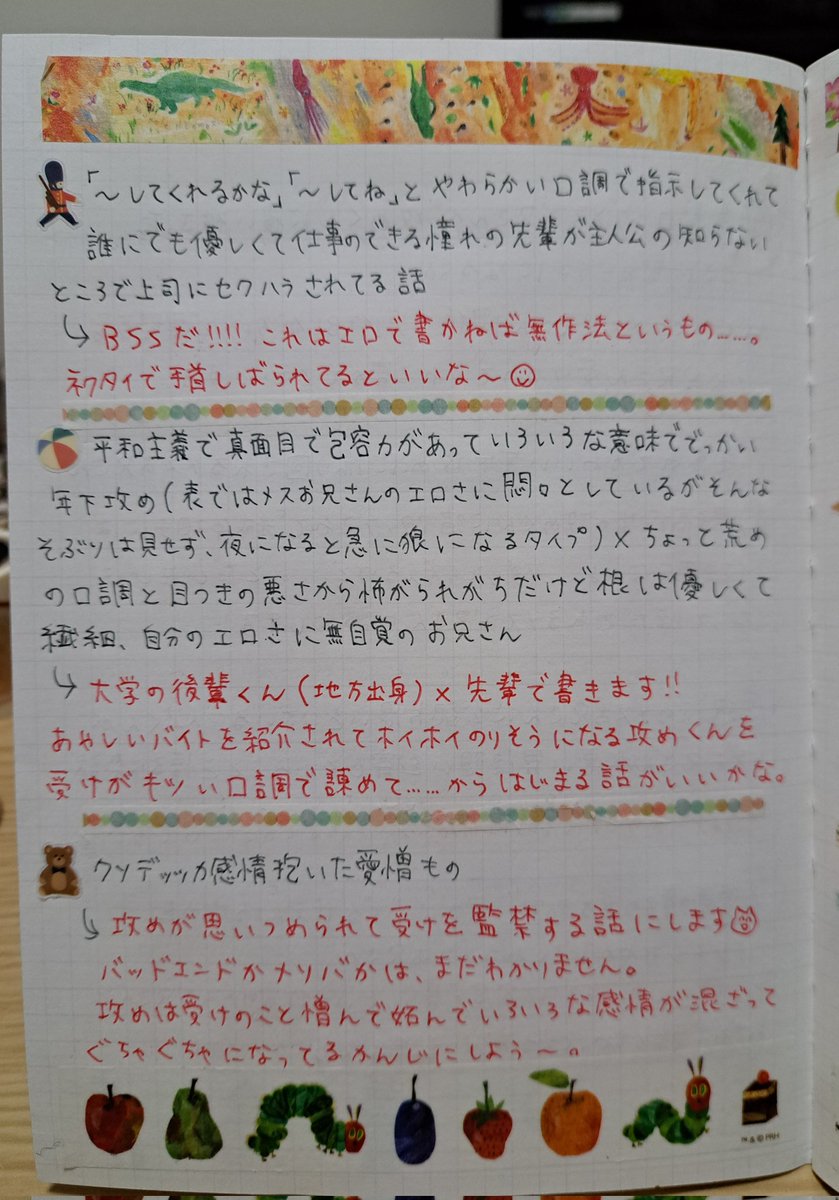 「～してくれるかな」「～してね」と やわらかい口調で指示してくれて
誰にでも優しくて仕事のできる憧れの先輩が主人公の知らない
ところで上司にセクハラされてる話
↳ BSSだ!!!! これはエロで書かねば無作法というもの……。
ネクタイで手首しばられてるといいな～☺
平和主義で真面目で包容力があっていろいろな意味ででっかい
年下攻め(表ではメスお兄さんのエロさに悶々としているがそんな
そぶりは見せず、夜になると急に狼になるタイプ)×ちょっと荒め
の口調と目つきの悪さから怖がられがちだけど根は優しくて
繊細、自分のエロさに無自覚のお兄さん
↳ 大学の後輩くん(地方出身)×先輩で書きます!!
あやしいバイトを紹介されてホイホイのりそうになる攻めくんを
受けがキツい口調で諌めて……からはじまる話がいいかな。
クソデッカ感情抱いた愛憎もの
↳ 攻めが思いつめられて受けを監禁する話にします
バッドエンドかメリバかは、まだわかりません。
攻めは受けのこと憎んで妬んでいろいろな感情が混ざって
ぐちゃぐちゃになってるかんじにしよう～。
™ & © PRH